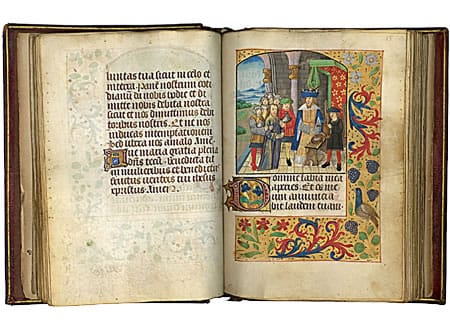 luntas tua sicut in celo et
in terra. Panē nostrum coti
dianū da nobis hodie et di
mitte nobis debita nostra
sicut et nos dimittimus debi
toribus nostris. Et ne nos
inducas in temptationem
sed libera nos a malo. Amē.
Aue maria gratia plena
dns tecū. benedicta tu
in mulieribus et benedictꝰ
fructus uentris tui ihesus
Amen
Domine labia mea
aperies. Et os me
um annunciā
bit laudem tuam.